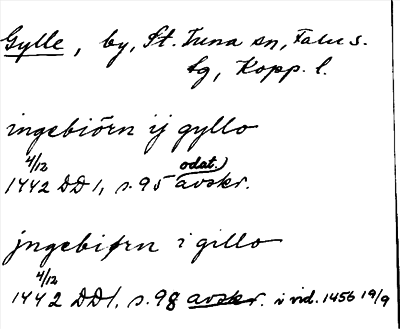 Gylle, by, St. Tuna sn, Falu s.
tg, Kopp. l.
ingebiörn ij gyllo
4/12 odat.
1442 DD1, s. 95 avskr.
jngebiørn i gillo
4/12
1442 DD1, s. 98 avskr. i vid. 1456 19/9